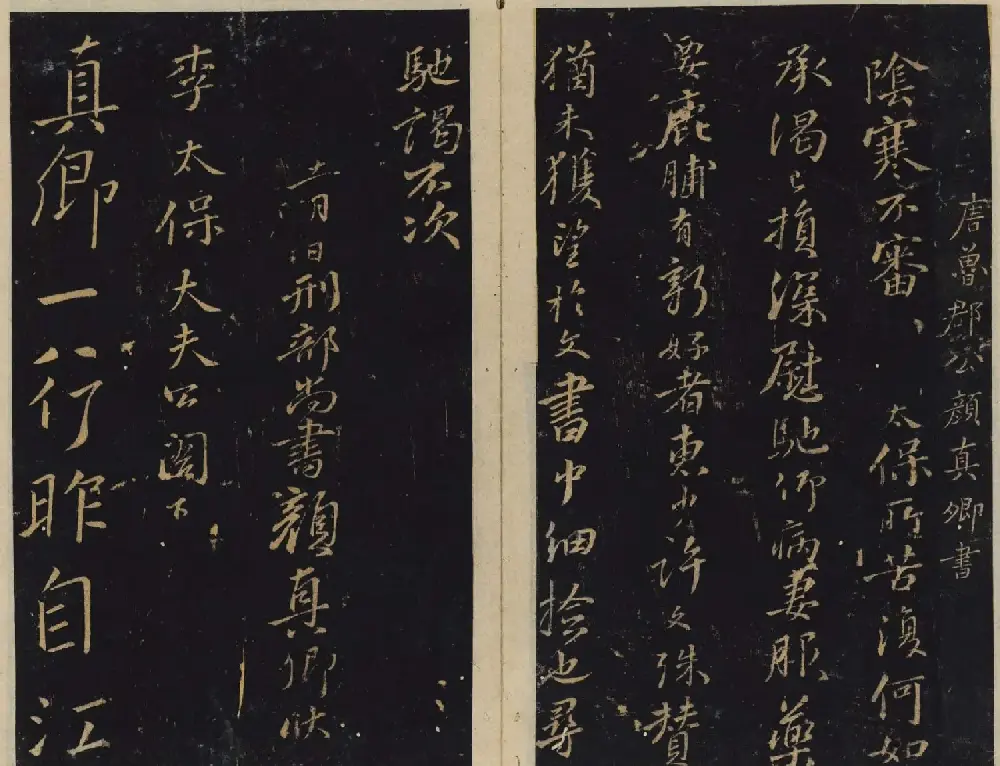 唐魯郡公顏真卿書
陰寒不審太保所苦復何如
承渴已損深慰馳仰病妻服藥
要鹿脯有新好者惠少許文殊贊
猶未獲望於文書中細撿也尋
馳謁不次
十一月日刑部尚書顏真卿狀
李太保大夫公閤下
真卿一行昨自江